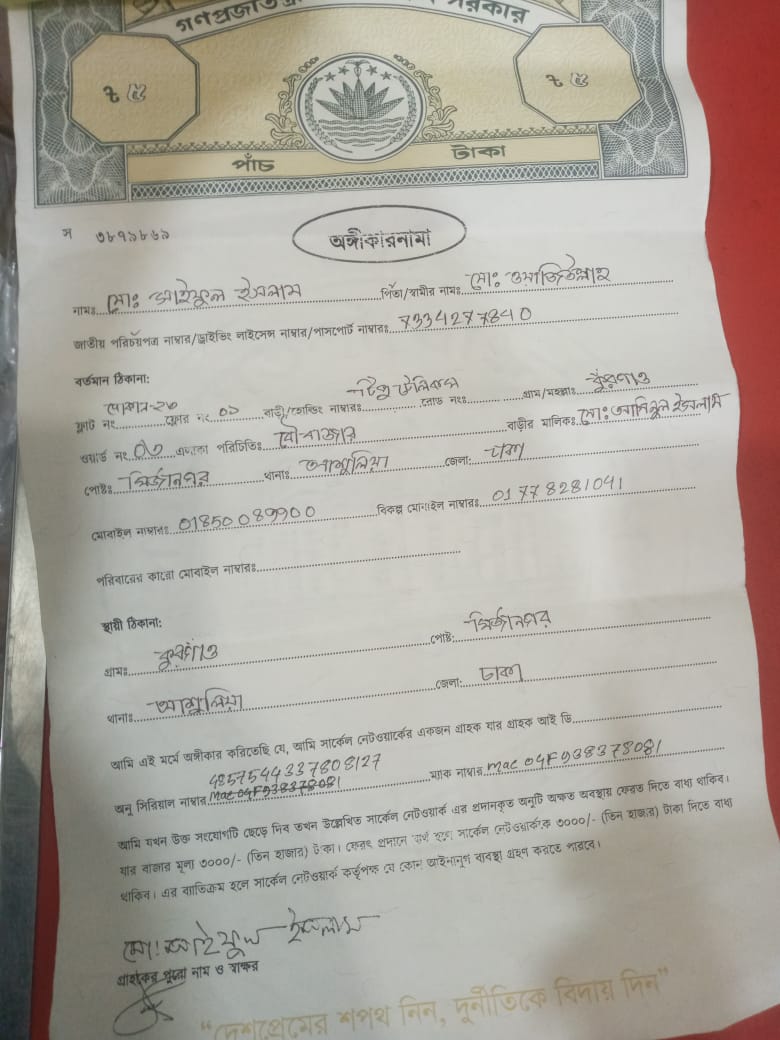 গণপ্রজাতন্ত্রী সরকার
৳ ৫ ৳ ৫
পাঁচ টাকা
স ৩৮৭৯৮৬৯
অঙ্গীকারনামা
নামঃ মোঃ সাইফুল ইসলাম পিতা/স্বামীর নামঃ মোঃ
জাতীয় পরিচয়পত্র নাম্বার/ড্রাইভিং লাইসেন্স নাম্বার/পাসপোর্ট নাম্বারঃ 7334277840
বর্তমান ঠিকানা:
ফ্লাট নং দোকান-২৬ ফ্লোর নং ০১ বাড়ী/হোল্ডিং নাম্বারঃ টেলিকম রোড নং গ্রাম/মহল্লাঃ কুরগাও
ওয়ার্ড নং এলাকা পরিচিতিঃ বৌ-বাজার বাড়ীর মালিকঃ মোঃ ইসলাম
পোষ্টঃ মির্জানগর থানাঃ আশুলিয়া জেলা: ঢাকা
মোবাইল নাম্বারঃ 01850089900 বিকল্প মোবাইল নাম্বারঃ 01778281041
পরিবারের কারো মোবাইল নাম্বারঃ
স্থায়ী ঠিকানা:
গ্রামঃ কুরগাঁও পোষ্ট: মির্জানগর
থানাঃ আশুলিয়া জেলা: ঢাকা
আমি এই মর্মে অঙ্গীকার করিতেছি যে, আমি সার্কেল নেটওয়ার্কের একজন গ্রাহক যার গ্রাহক আই ডি
4857544337808127
অনু সিরিয়াল নাম্বার mac 04F938378081 ম্যাক নাম্বার mac 04F938378081
আমি যখন উক্ত সংযোগটি ছেড়ে দিব তখন উল্লেখিত সার্কেল নেটওয়ার্ক এর প্রদানকৃত অনুটি অক্ষত অবস্থায় ফেরত দিতে বাধ্য থাকিব।
যার বাজার মূল্য ৩০০০/- (তিন হাজার) টাকা। ফেরৎ প্রদানে ব্যর্থ হলে সার্কেল নেটওয়ার্ককে ৩০০০/- (তিন হাজার) টাকা দিতে বাধ্য
থাকিব। এর ব্যতিক্রম হলে সার্কেল নেটওয়ার্ক কর্তৃপক্ষ যে কোন আইনানুগ ব্যবস্থা গ্রহণ করতে পারবে।
মো: সাইফুল ইসলাম
গ্রাহকের পুরো নাম ও স্বাক্ষর
“দেশপ্রেমের শপথ নিন, দুর্নীতিকে বিদায় দিন”